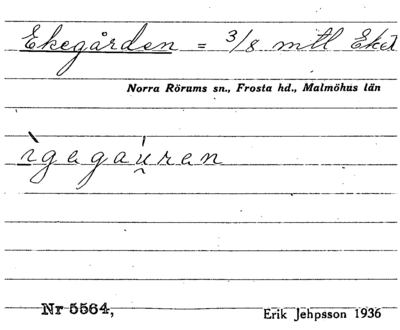 Ekegården = 3/8 mtl Eket
Norra Rörums sn., Frosta hd., Malmöhus län
ìgagaú̯ran
Nr 5564,
Erik Jehpsson 1936